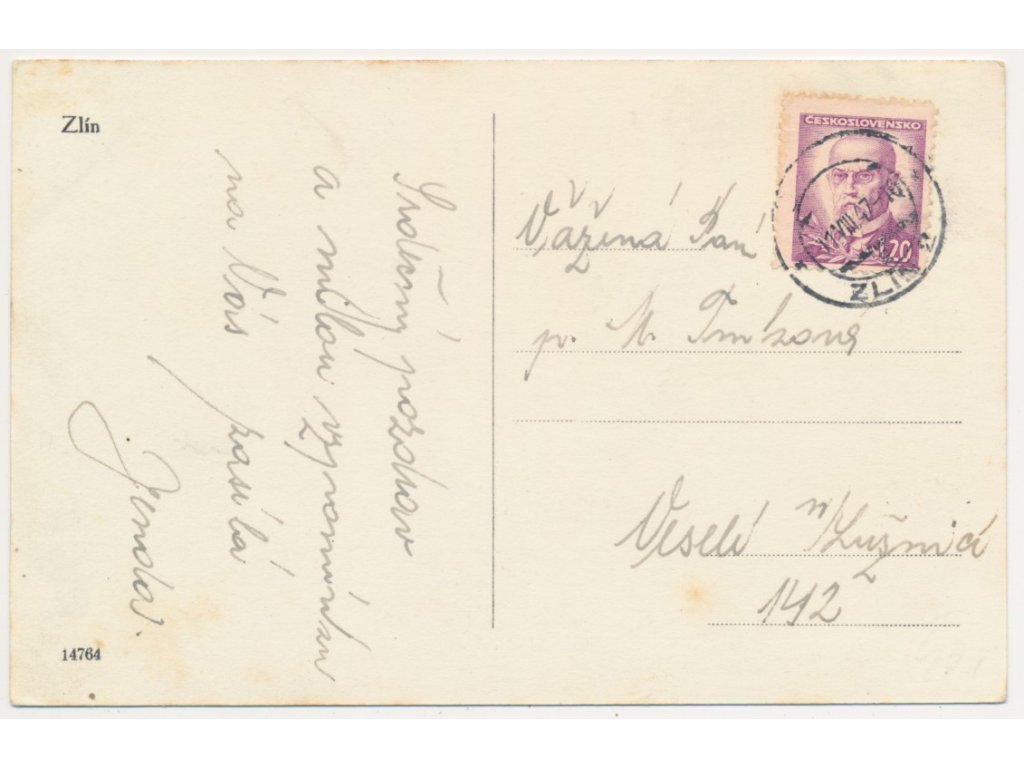 Zlín
Srdečný pozdrav
a milou vzpomínku
na Vás posílá
Jenda.
14764
ČESKOSLOVENSKO
1.20
ZLÍN 2
Vážená Paní
p. M.
Veselí n/Lužnicí
142